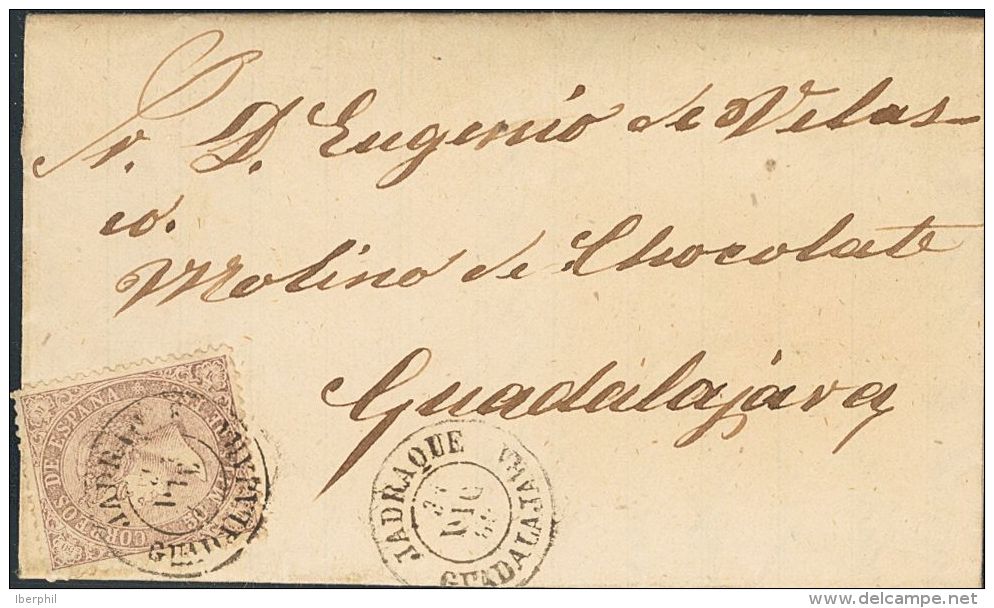 Sr. D. Eugenio de Velas-
co.
Molino de Chocolate
Guadalajara
CORREOS DE ESPAÑA
50 M
JADRAQUE
GUADALAJARA
JADRAQUE
DIC
GUADALAJARA
Iberphil
delcampe.net